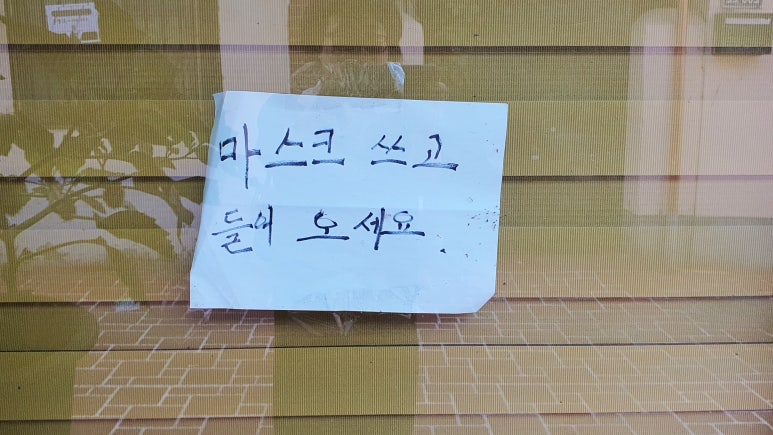 마스크 쓰고
들어 오세요.